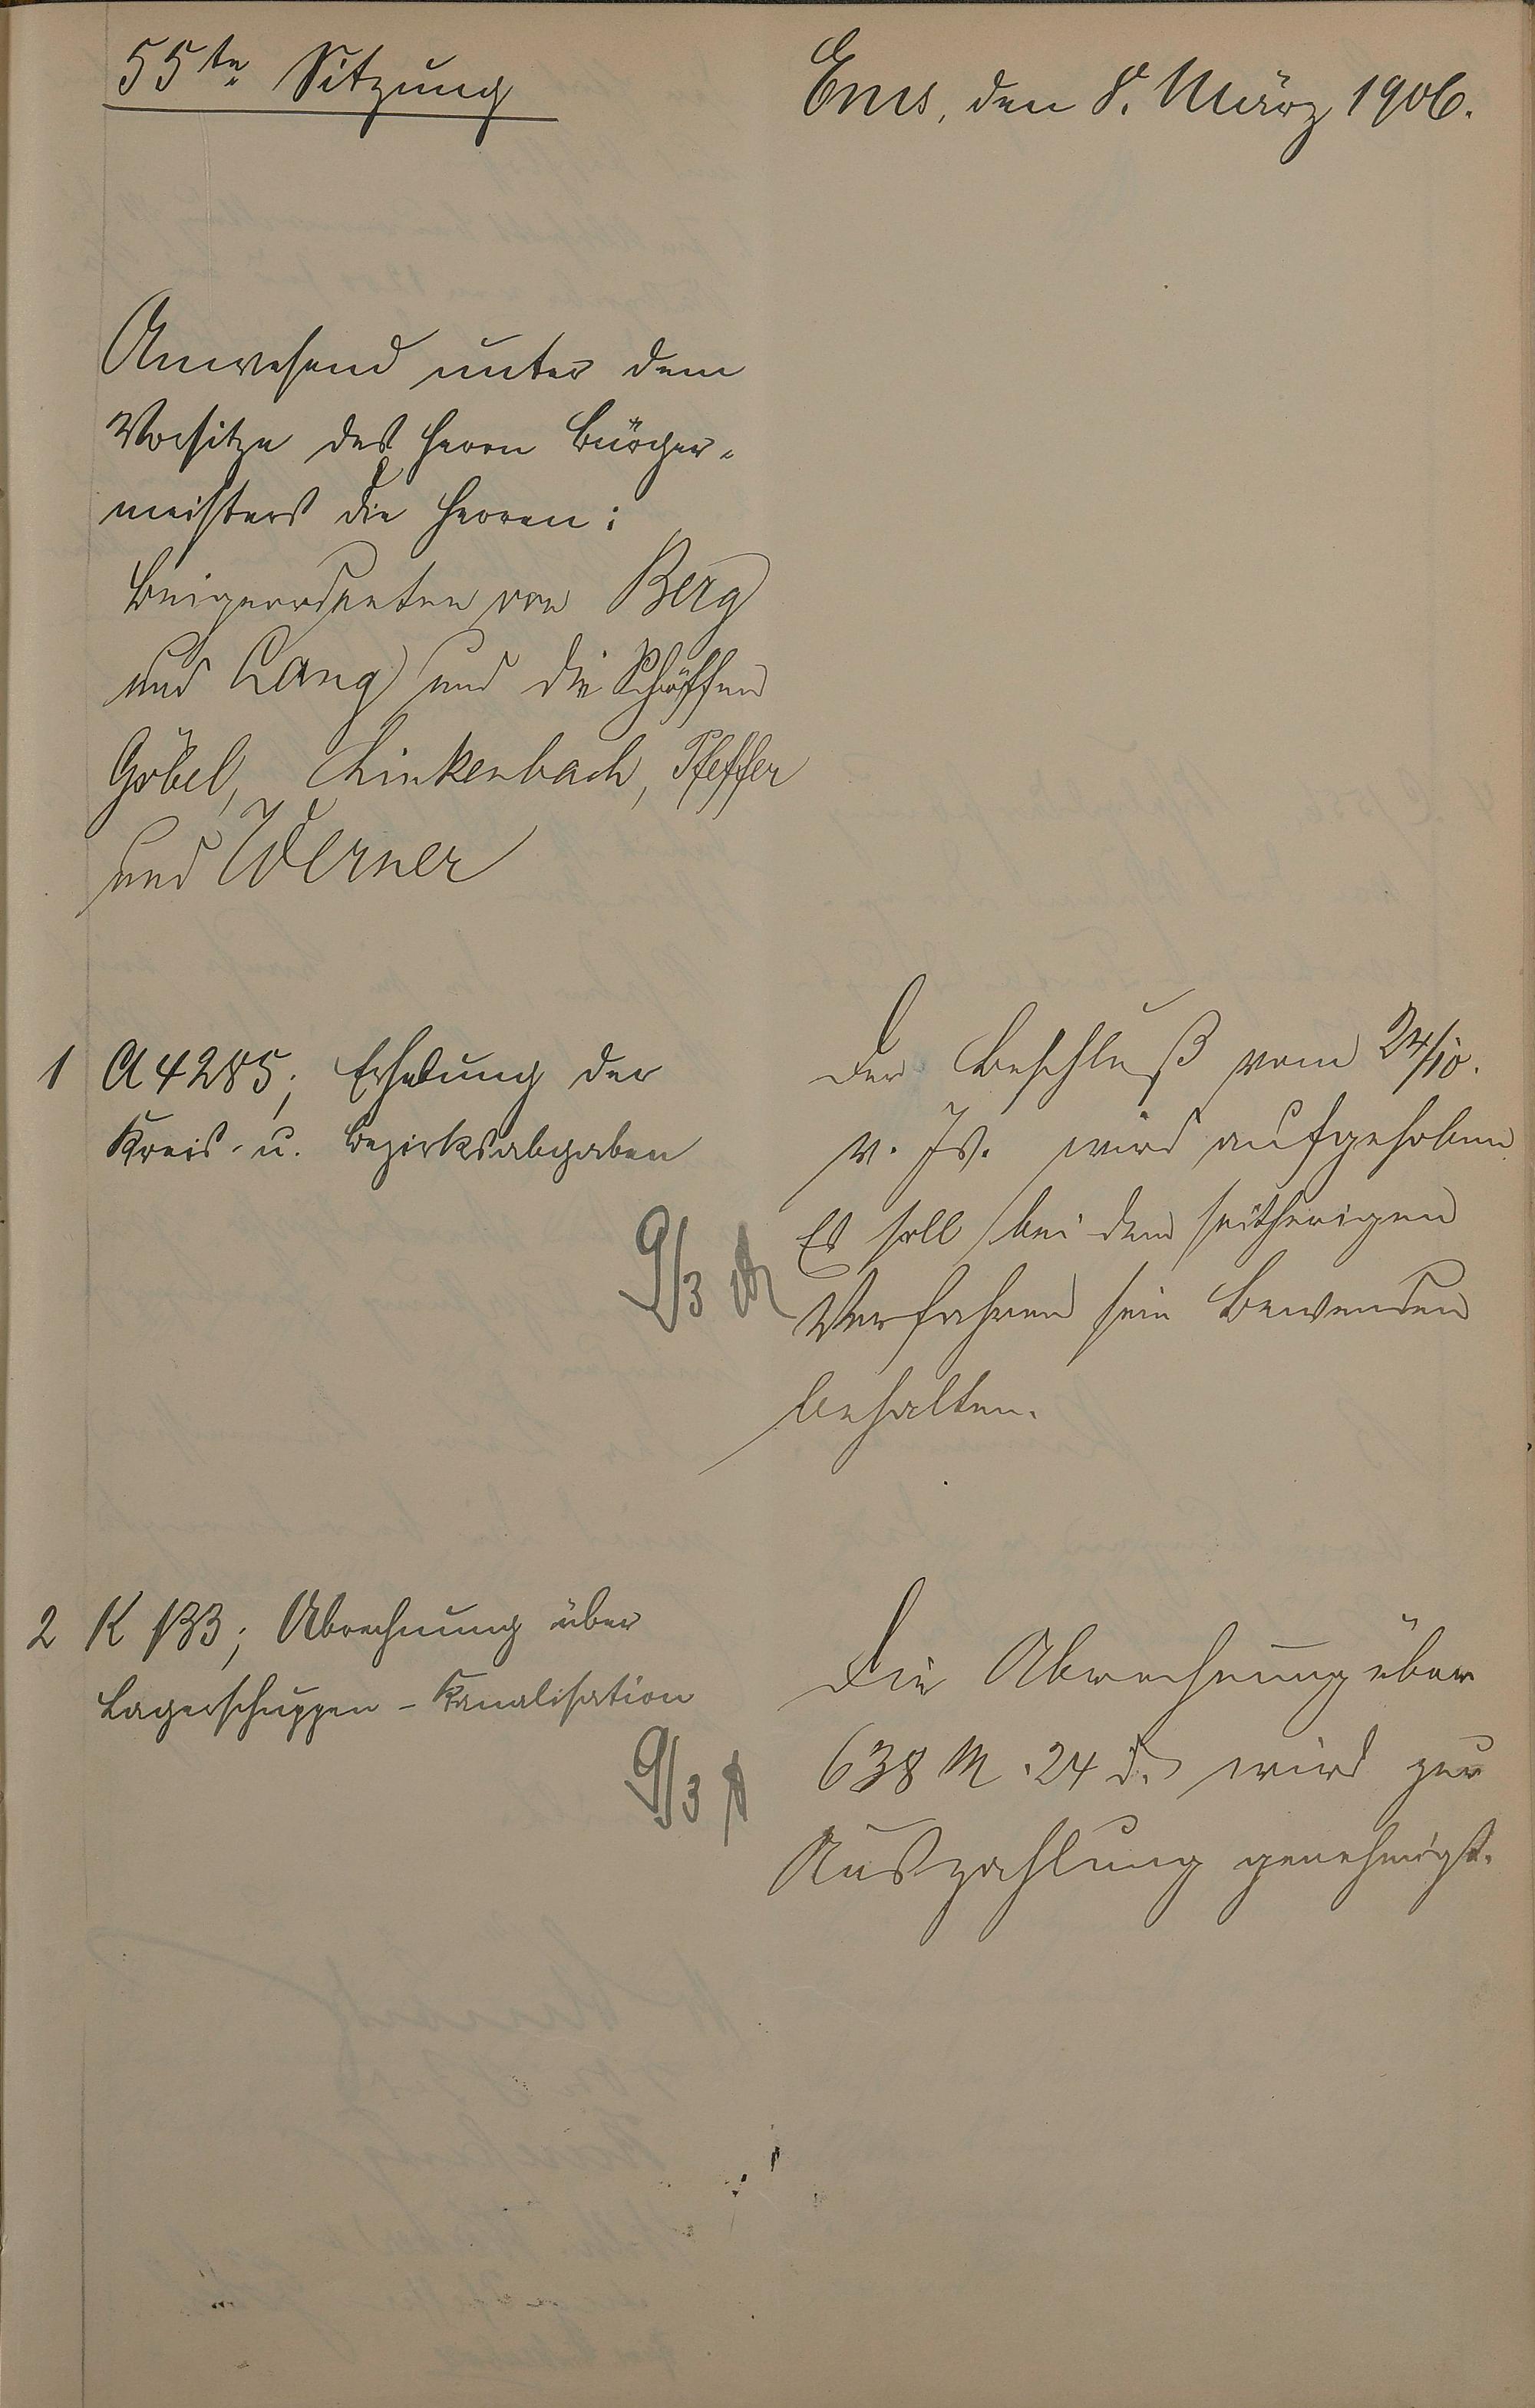 55te Sitzung
Ems, den 8. März 1906.
Anwesend unter dem
Vorsitze des Herrn Bürger-
meisters die Herren:
Beigeordneten von Berg
und Lang und die Schöffen
Göbel, Linkenbach, Pfeffer
und Werner
1 A 4285; Erhebung der
Kreis- u. Bezirksabgaben
9/3
Der Beschluß vom 24/10.
v. Js. wird aufgehoben
Es soll bei dem seitherigen
Verfahren sein Bewenden
behalten.
2 K 133; Abrechnung über
Lagerschuppen-Kanalisation
9/3
Die Abrechnung über
638 M. 24 d. wird zur
Auszahlung genehmigt.